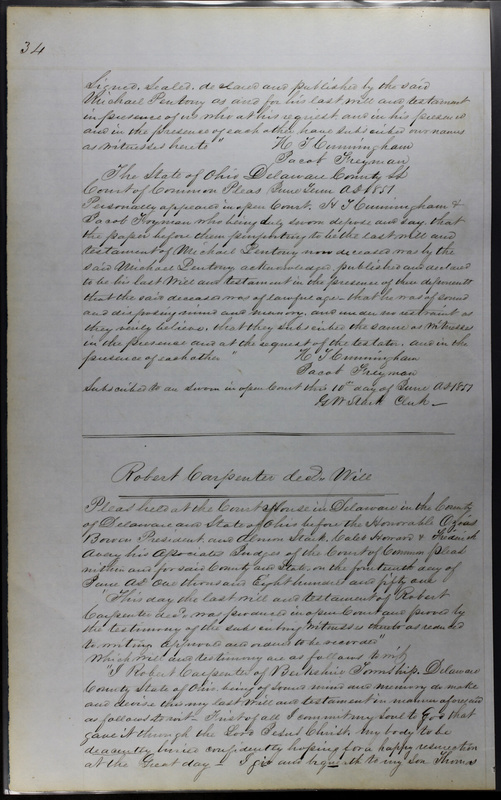 34
Signed, Sealed, declared and published by the said
Michael Pentony as and for his last will and testament
in presence of us who at his request and in his presence
and in the presence of each other have subscribed our names
as witnesses hereto" H T Cunningham
Jacob Freyman
The State of Ohio Delaware County Ss
Court of Common Pleas June Term AD 1851
Personally appeared in open Court, H T Cunningham &
Jacob Freyman who being duly sworn depose and say, that
the paper before them purporting to be the last will and
testament of Michael Pentony now deceased was by the
said Michael Pentony acknowledged published and declared
to be his last will and testament in the presence of these deponents
that the said deceased was of lawful age - that he was of sound
and disposing mind and memory, and under no restraint as
they verily believe, that they subscribed the same as witnesses
in the presence and at the request of the testator, and in the
presence of each other" H T Cunningham
Jacob Freyman
Subscribed to an sworn in open Court this 10th day of June AD 1851
G W Stark Clerk
Robert Carpenter decd. Will
Pleas held at the Court House in Delaware in the County
of Delaware and State of Ohio before the Honorable
Bowen President and Stark Caleb Howard & Frederick
Avery his Associate Judges of the Court of Common pleas
within and for said County and State, on the fourteenth day of
June AD One thousand Eight hundred and fifty one
"This day the last will and testament of Robert
Carpenter decd. was produced in open Court and proved by
the testimony of the subscribing witnesses thereto as reduced
to writing Approved and ordered to be recorded"
Which will and testimony are as follows to wit,
"I Robert Carpenter of Berkshire Township, Delaware
County State of Ohio being of sound mind and memory do make
and devise this my last will and testament in manner aforesaid
as follows to wit First of all I commit my soul to God that
gave it through the Lord Jesus Christ. My body to be
deacently buried confidently hoping for a happy resurrection
at the Great day - I give and bequeath to my son Thomas